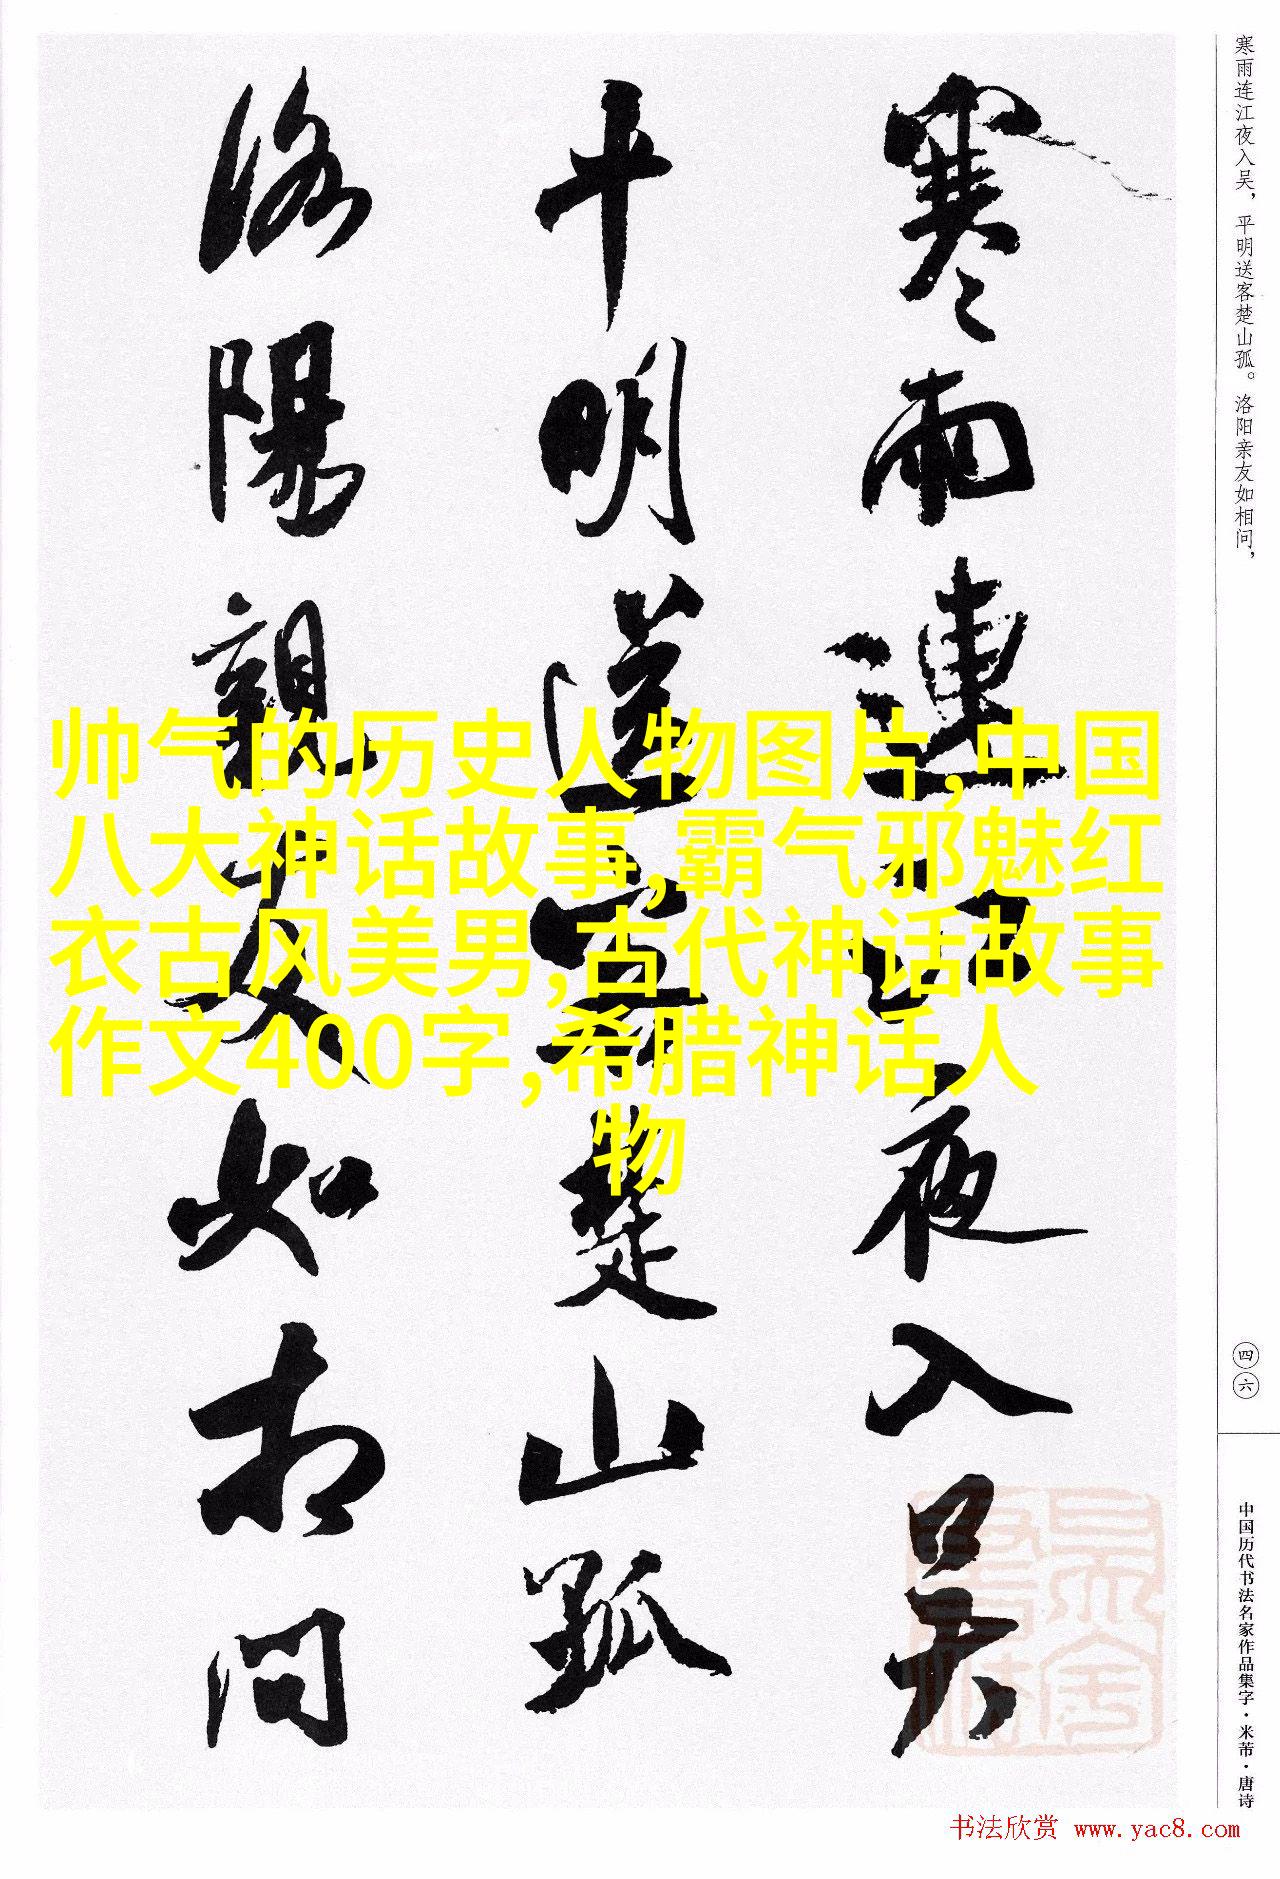 寒雨連江夜入吴
平明送客楚山孤
洛陽親友如相问
寒雨连江夜入吴，平明送客楚山孤。洛阳亲友如相问，
四六
中国历代书法名家作品集字·米芾·唐诗
帅气的历史人物图片,中国
八大神话故事,霸气邪魅红
衣古风美男,古代神话故事
作文400字,希腊神话人
物
书法欣赏 www.yac8.com